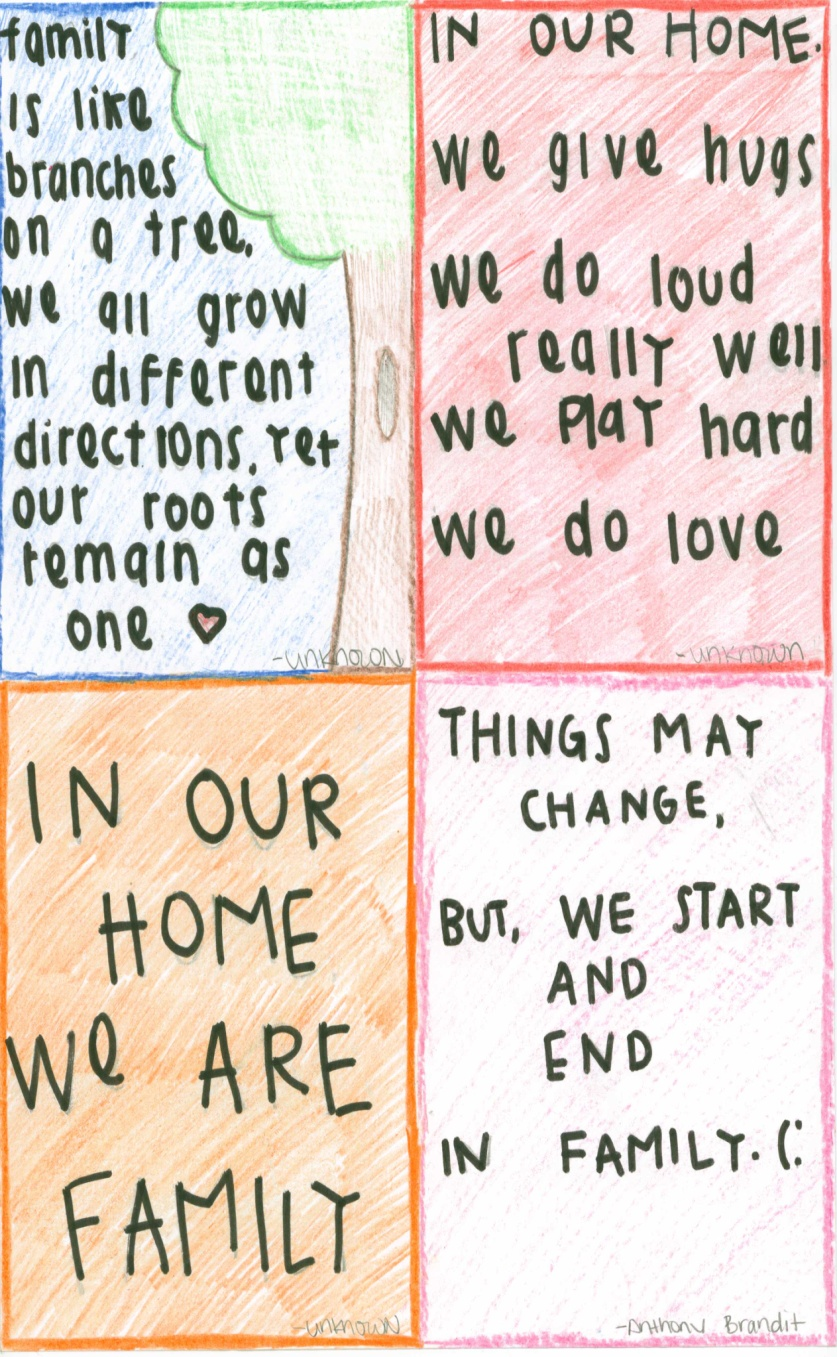 family
is like
branches
on a tree.
we all grow
in different
directions, yet
our roots
remain as
one
-unknown
IN OUR HOME.
we give hugs
we do loud
really well
we play hard
we do love
-unknown
IN OUR
HOME
We ARE
FAMILY
-unknown
THINGS MAY
CHANGE,
BUT, WE START
AND
END
IN FAMILY. (:
-Anthony Brandit